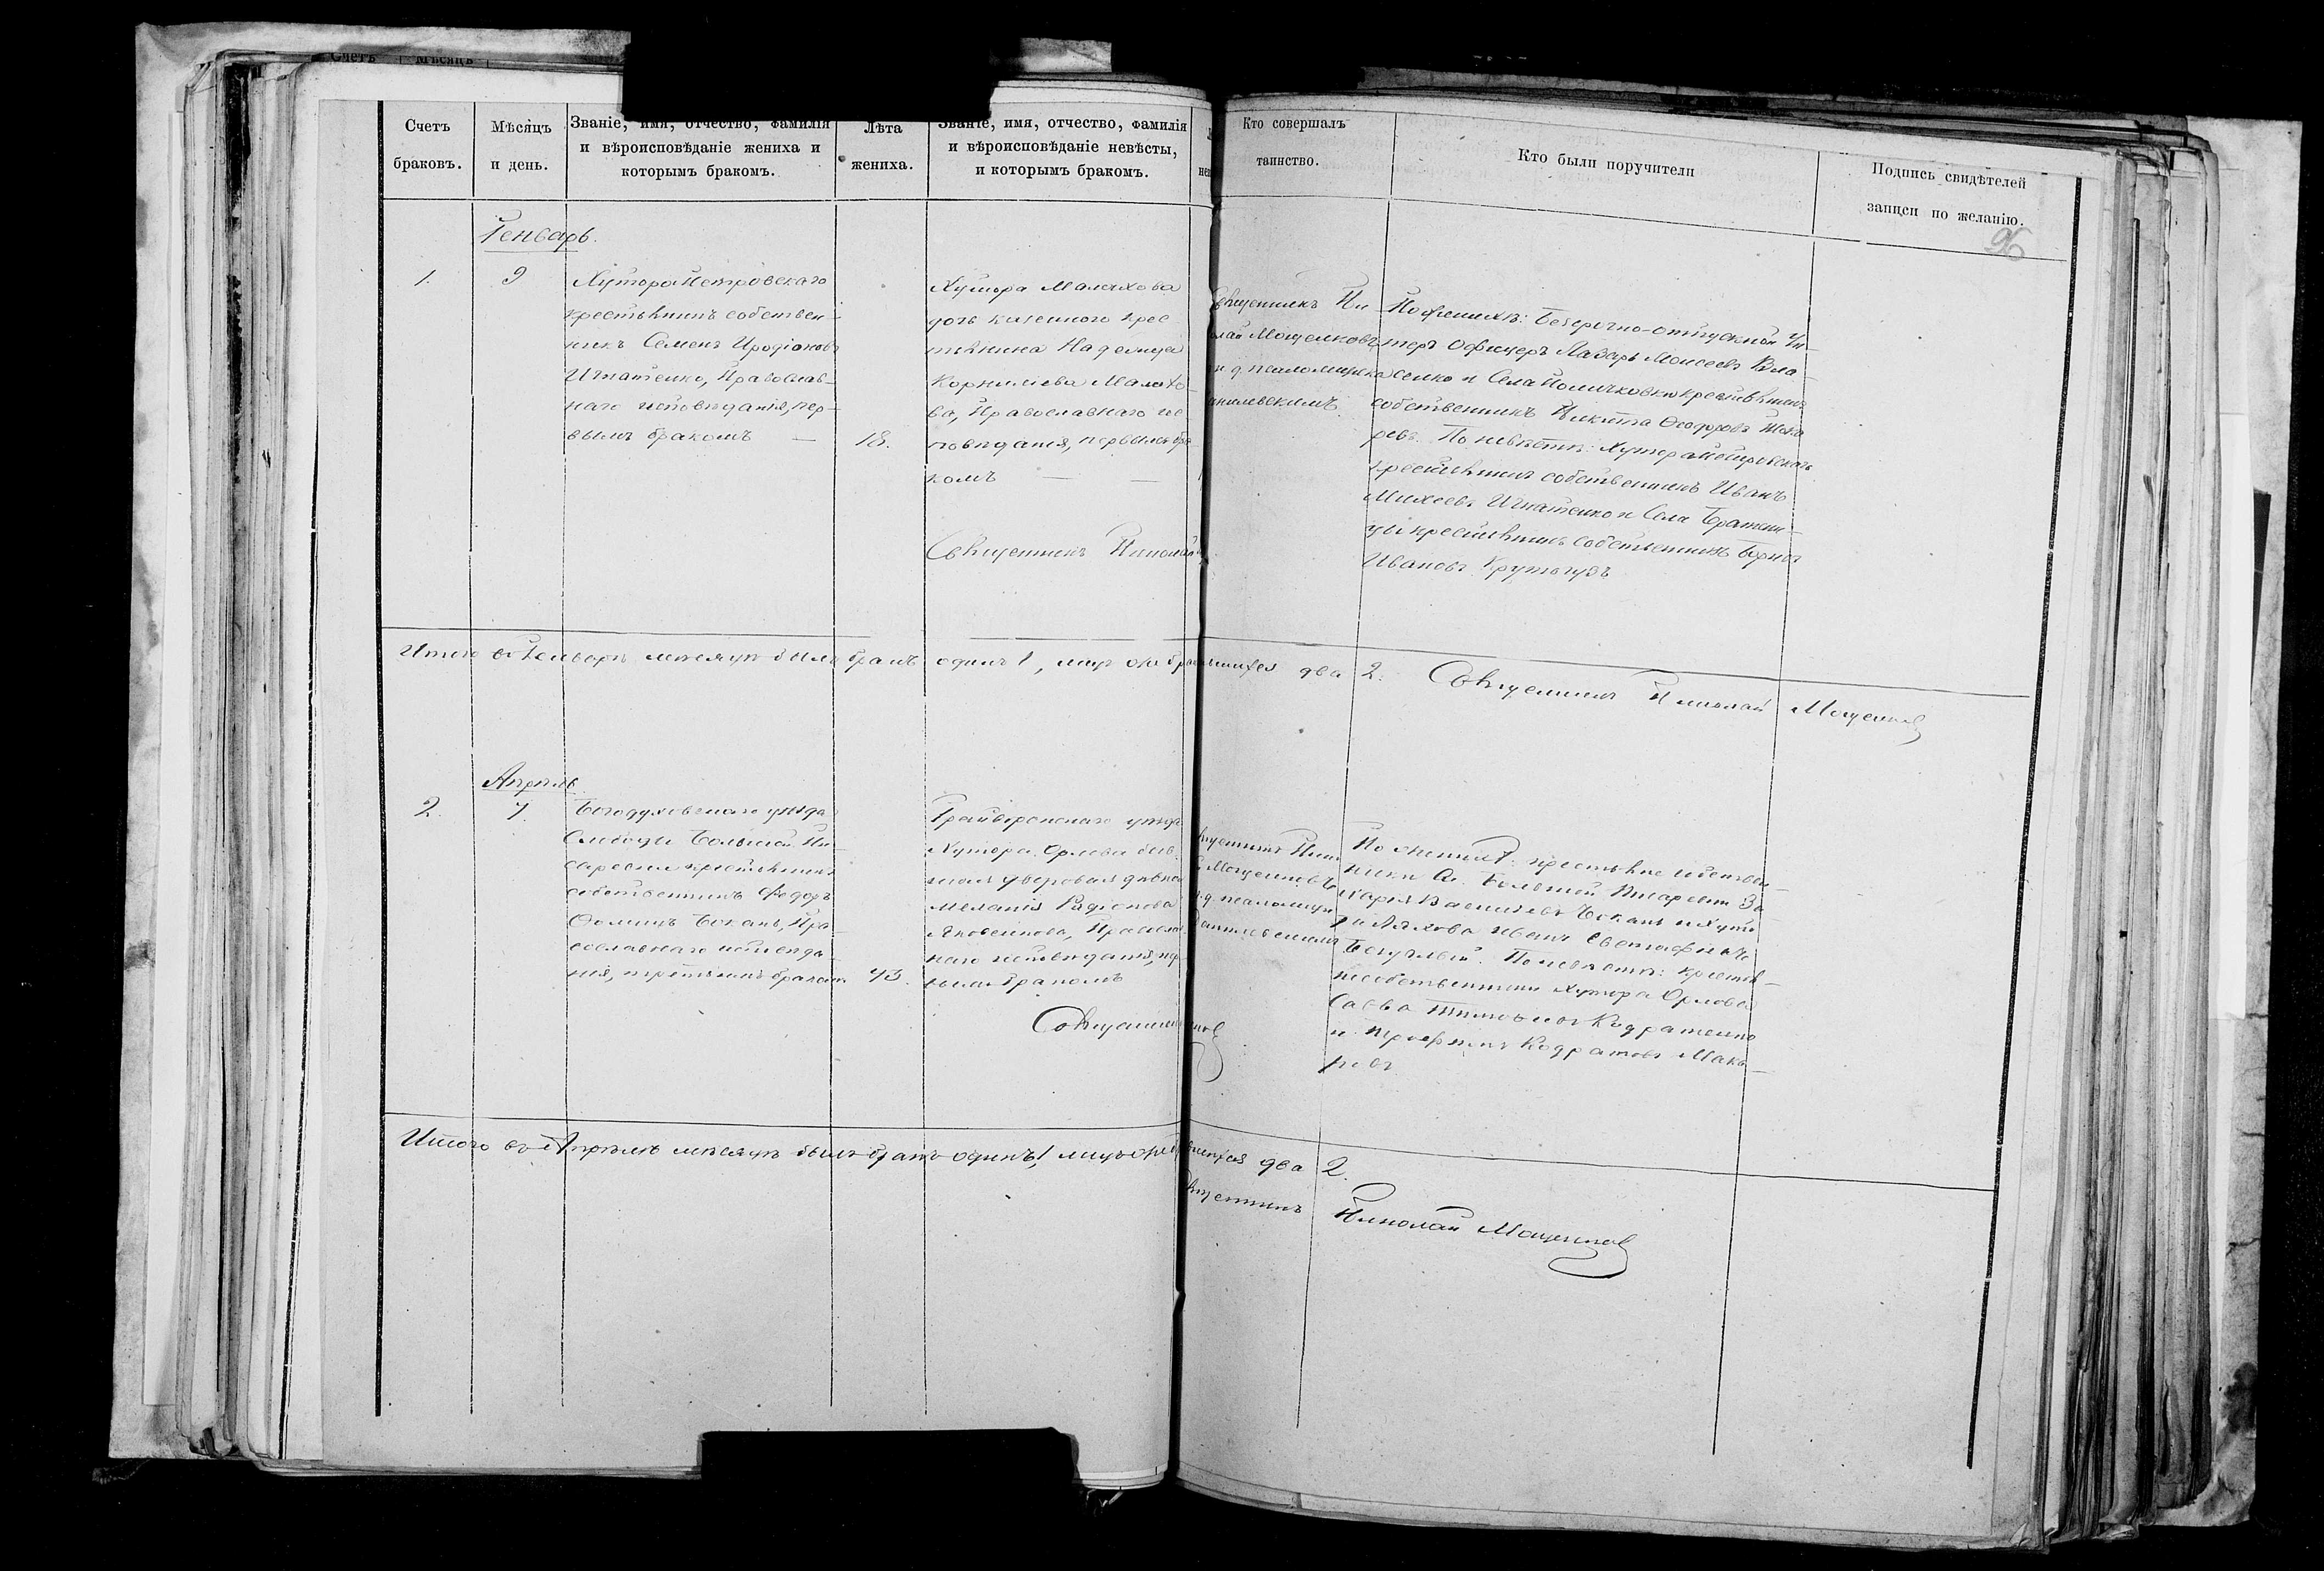 Счетъ Мѣсяцъ
Счетъ
браковъ.
Мѣсяцъ
и день.
Званіе, имя, отчество, фамилія
и вѣроисповѣданіе жениха и
которымъ бракомъ.
Лѣта
жениха.
Званіе, имя, отчество, фамилія
и вѣроисповѣданіе невѣсты,
и которымъ бракомъ.
Кто совершалъ
таинство.
Кто были поручители
Подпись свидѣтелей
записи по желанію.
96
Генварь.
1.
9
Хутора Петровскаго
крестьянинъ собствен-
никъ Семенъ Иродіоновъ
Игнатенко, Православ-
наго исповѣданія, пер-
вымъ бракомъ —
18.
Хутора Малахова
дочь казеннаго крес
тьянина Надежда
Корниліева Малахо-
ва, Православнаго ис-
повѣданія, первымъ бра-
комъ — —
Священникъ Николай
Священникъ Ни
лай Мощенковъ
и д. псаломщика
По женихѣ: Безсрочно-отпускной Ун-
теръ Офицеръ Лазарь Моисеевъ Вла-
сенко и Села крестьянинъ
собственникъ Никита Ѳеодоровъ Тока
ревъ. По невѣстѣ: Хутора Петровскаго
крестьянинъ собственникъ Иванъ
Михеевъ Игнатенко и Села Братени-
цы крестьянинъ собственникъ Борисъ
Ивановъ
Итого въ Генварѣ мѣсяцѣ былъ бракъ одинъ 1, лицъ два 2. Священникъ Николай Мощенков
Апрѣль
2.
7.
Богодуховскаго уѣзда
Слободы Большой Пи-
саревки крестьянинъ
собственникъ Федоръ
Ѳоминъ Боканъ, Пра-
вославнаго исповѣда-
нія, третьимъ бракомъ
43.
Грайворонскаго уѣзда
Хутора Орлова быв.
шая дворовая дѣвка
Меланія Радіонова
Яковенкова, Православ-
наго исповѣданія, пер
вымъ бракомъ
Священник
щенникъ Ник
Мощенковъ
и д. псаломщи
По женихѣ: крестьяне собствен-
ники Сл. Большой Писаревки За
харія Васильевъ Боканъ и Хуто
ра Ляхова Иванъ
По невѣстѣ: крестья-
не собственники Хутора Орлова
Савва Кодратенко
и Трофимъ Кодратовъ Мака-
ровъ
Итого въ Апрѣлѣ мѣсяцѣ былъ бракъ одинъ 1, лицъ два 2.
щенникъ Николай Мощенков